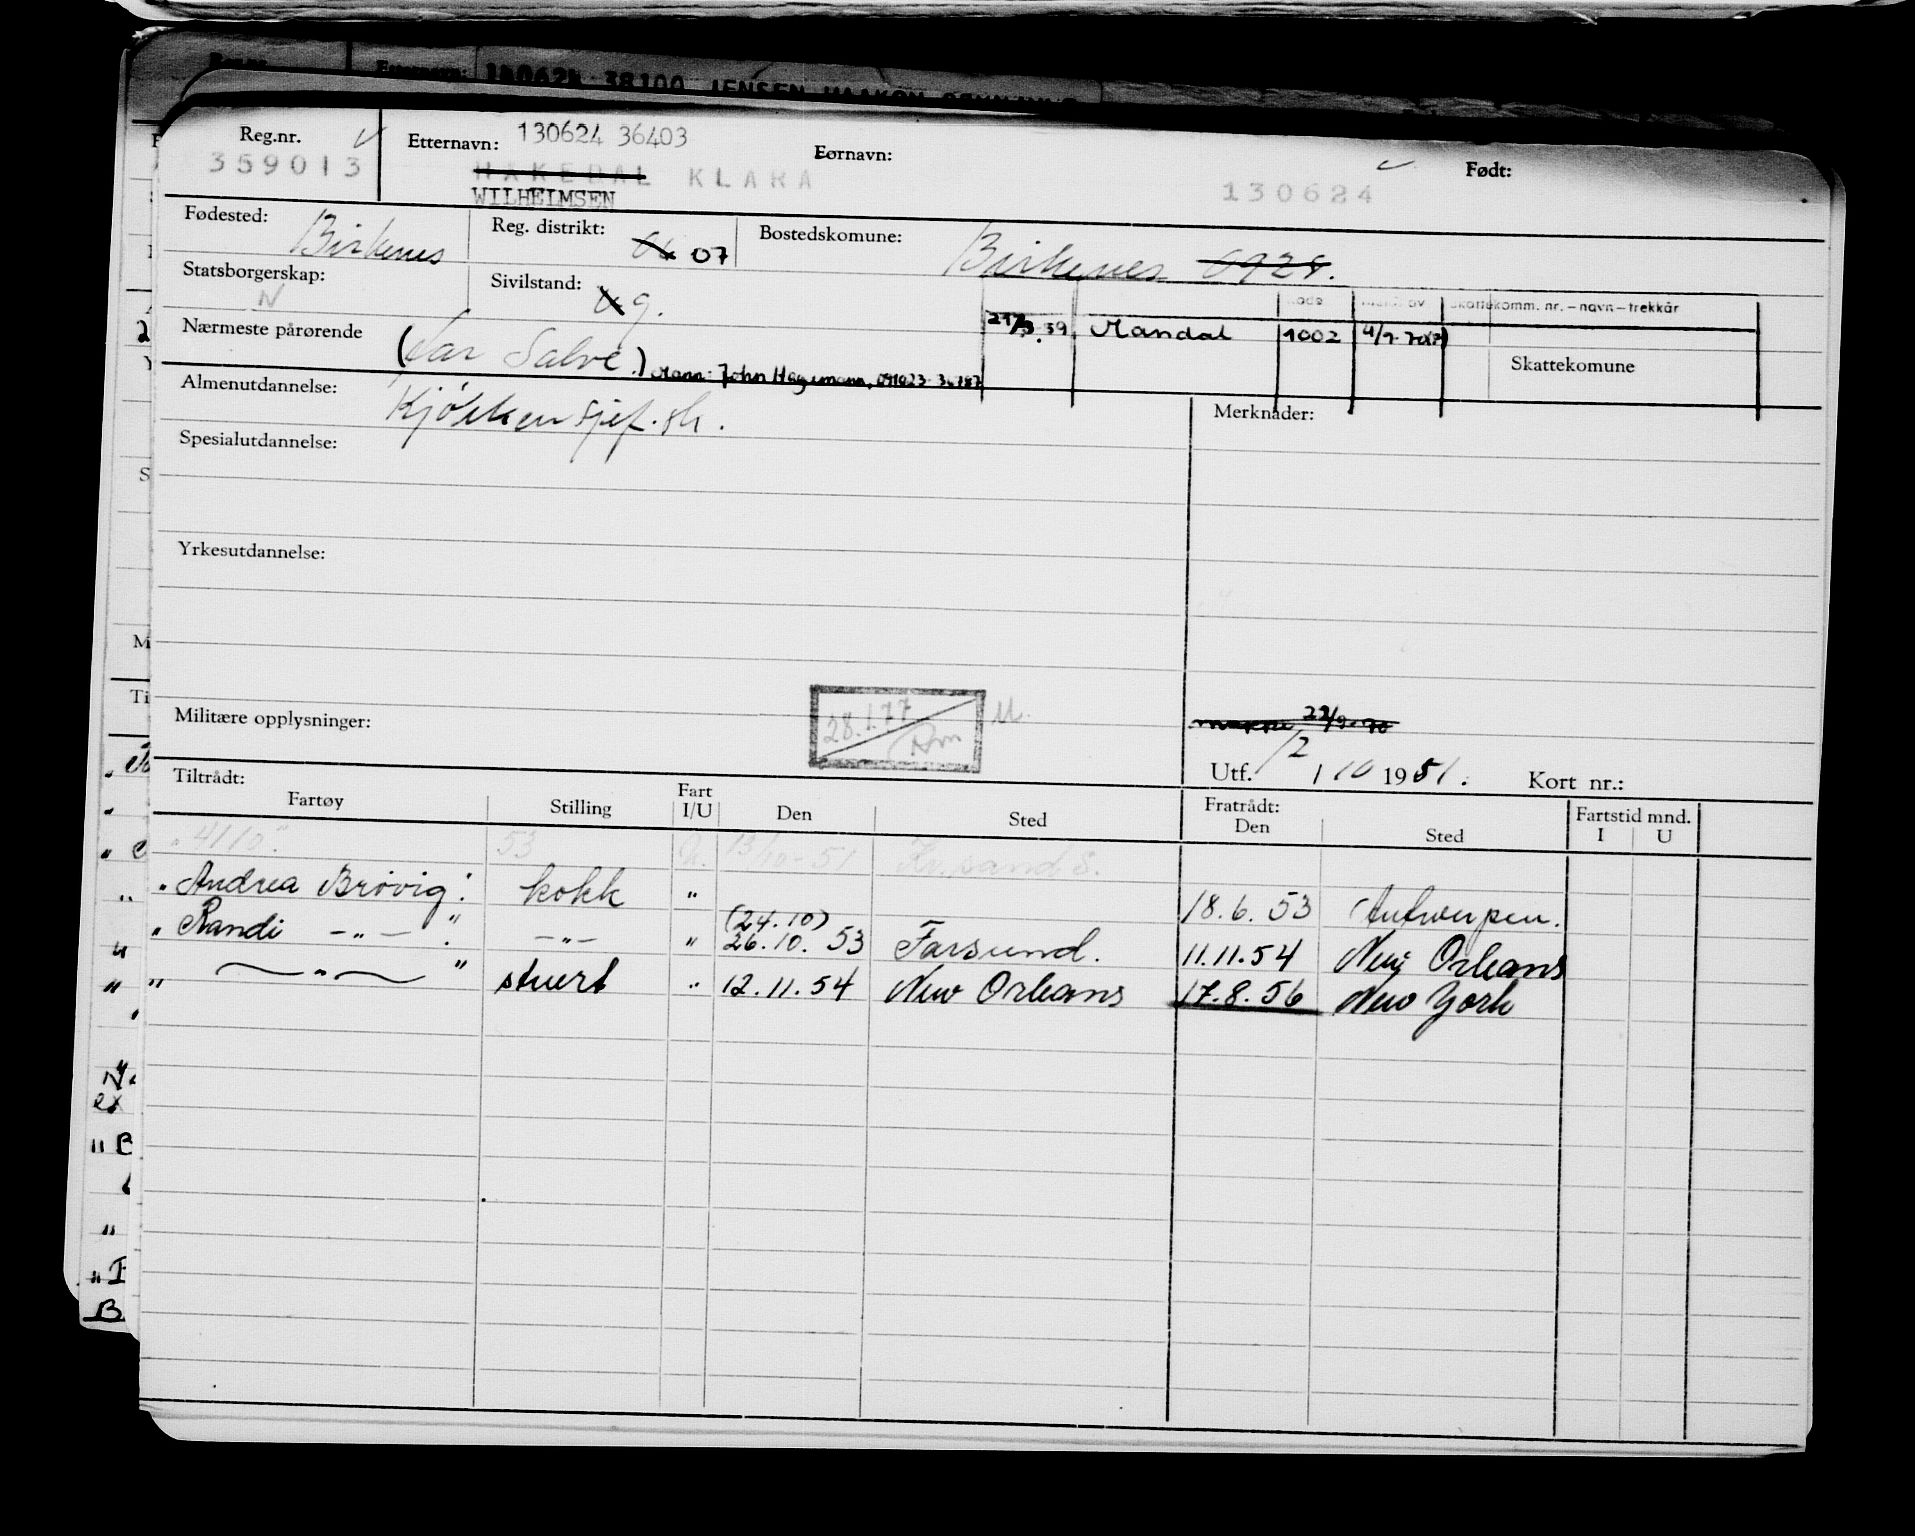 130624 38100 JENSEN HAAKON
Reg.nr.
359013
Etternavn: 130624 36403
HAKEDAL KLARA
WILHELMSEN
Fornavn:
Født:
130624
Fødested: Birkenes
Reg. distrikt: 07
Bostedskomune: Birkenes 0928.
Statsborgerskap: N
Sivilstand: U g.
Kode
Skattekomm. nr. – navn – trekkår
Nærmeste pårørende (Far Salve.) Mann: John Hagemann,
Mandal 1002
Skattekomune
Almenutdannelse: Kjøkkensjef.sk.
Merknader:
Spesialutdannelse:
Yrkesutdannelse:
Militære opplysninger:
28.1.77
M.
22/9-70
Utf. 12/10 1951.
Kort nr.:
Tiltrådt:
Fartøy Stilling Fart I/U Den Sted
Fratrådt:
Den Sted
Fartstid mnd.
I U
"4110" 53 U. 13/10-51 Kr.sand S.
"Andrea Brøvig" kokk " 18.6.53 Antwerpen.
"Randi -"-" -"- " (24.10) 26.10.53 Farsund. 11.11.54 New Orleans
" -"- " stuert " 12.11.54 New Orleans 17.8.56 New York